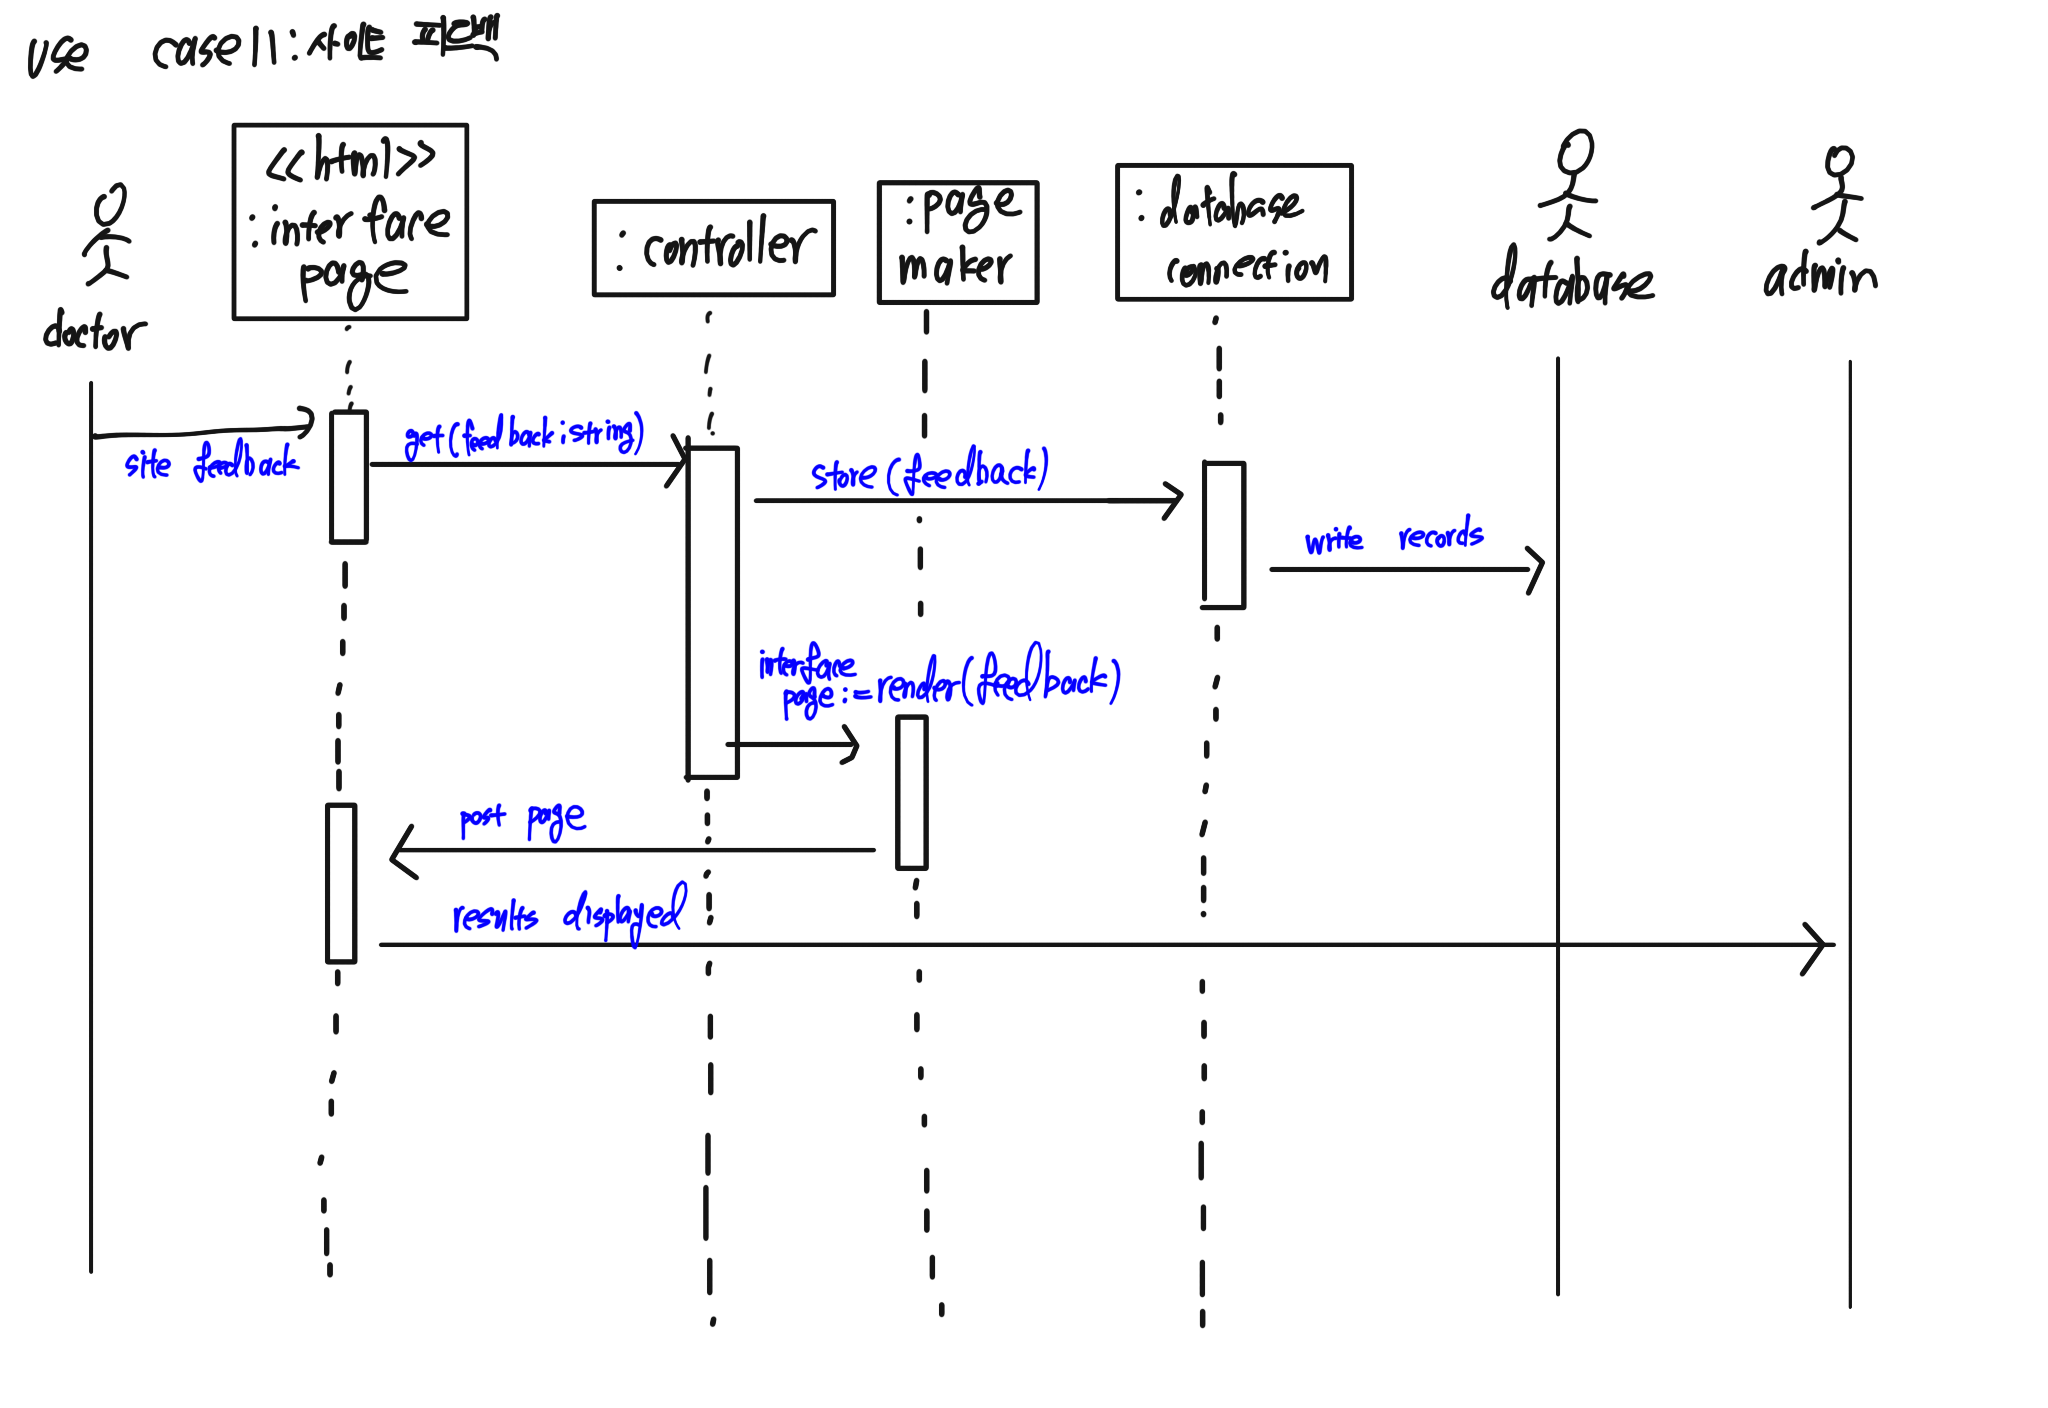 use case 11 : 사이트 피드백
<<html>>
: interface
page
: controller
: page
maker
: database
connection
doctor
database
admin
site feedback
get (feedback : string)
store (feedback)
write records
interface
page := render (feedback)
post page
results displayed